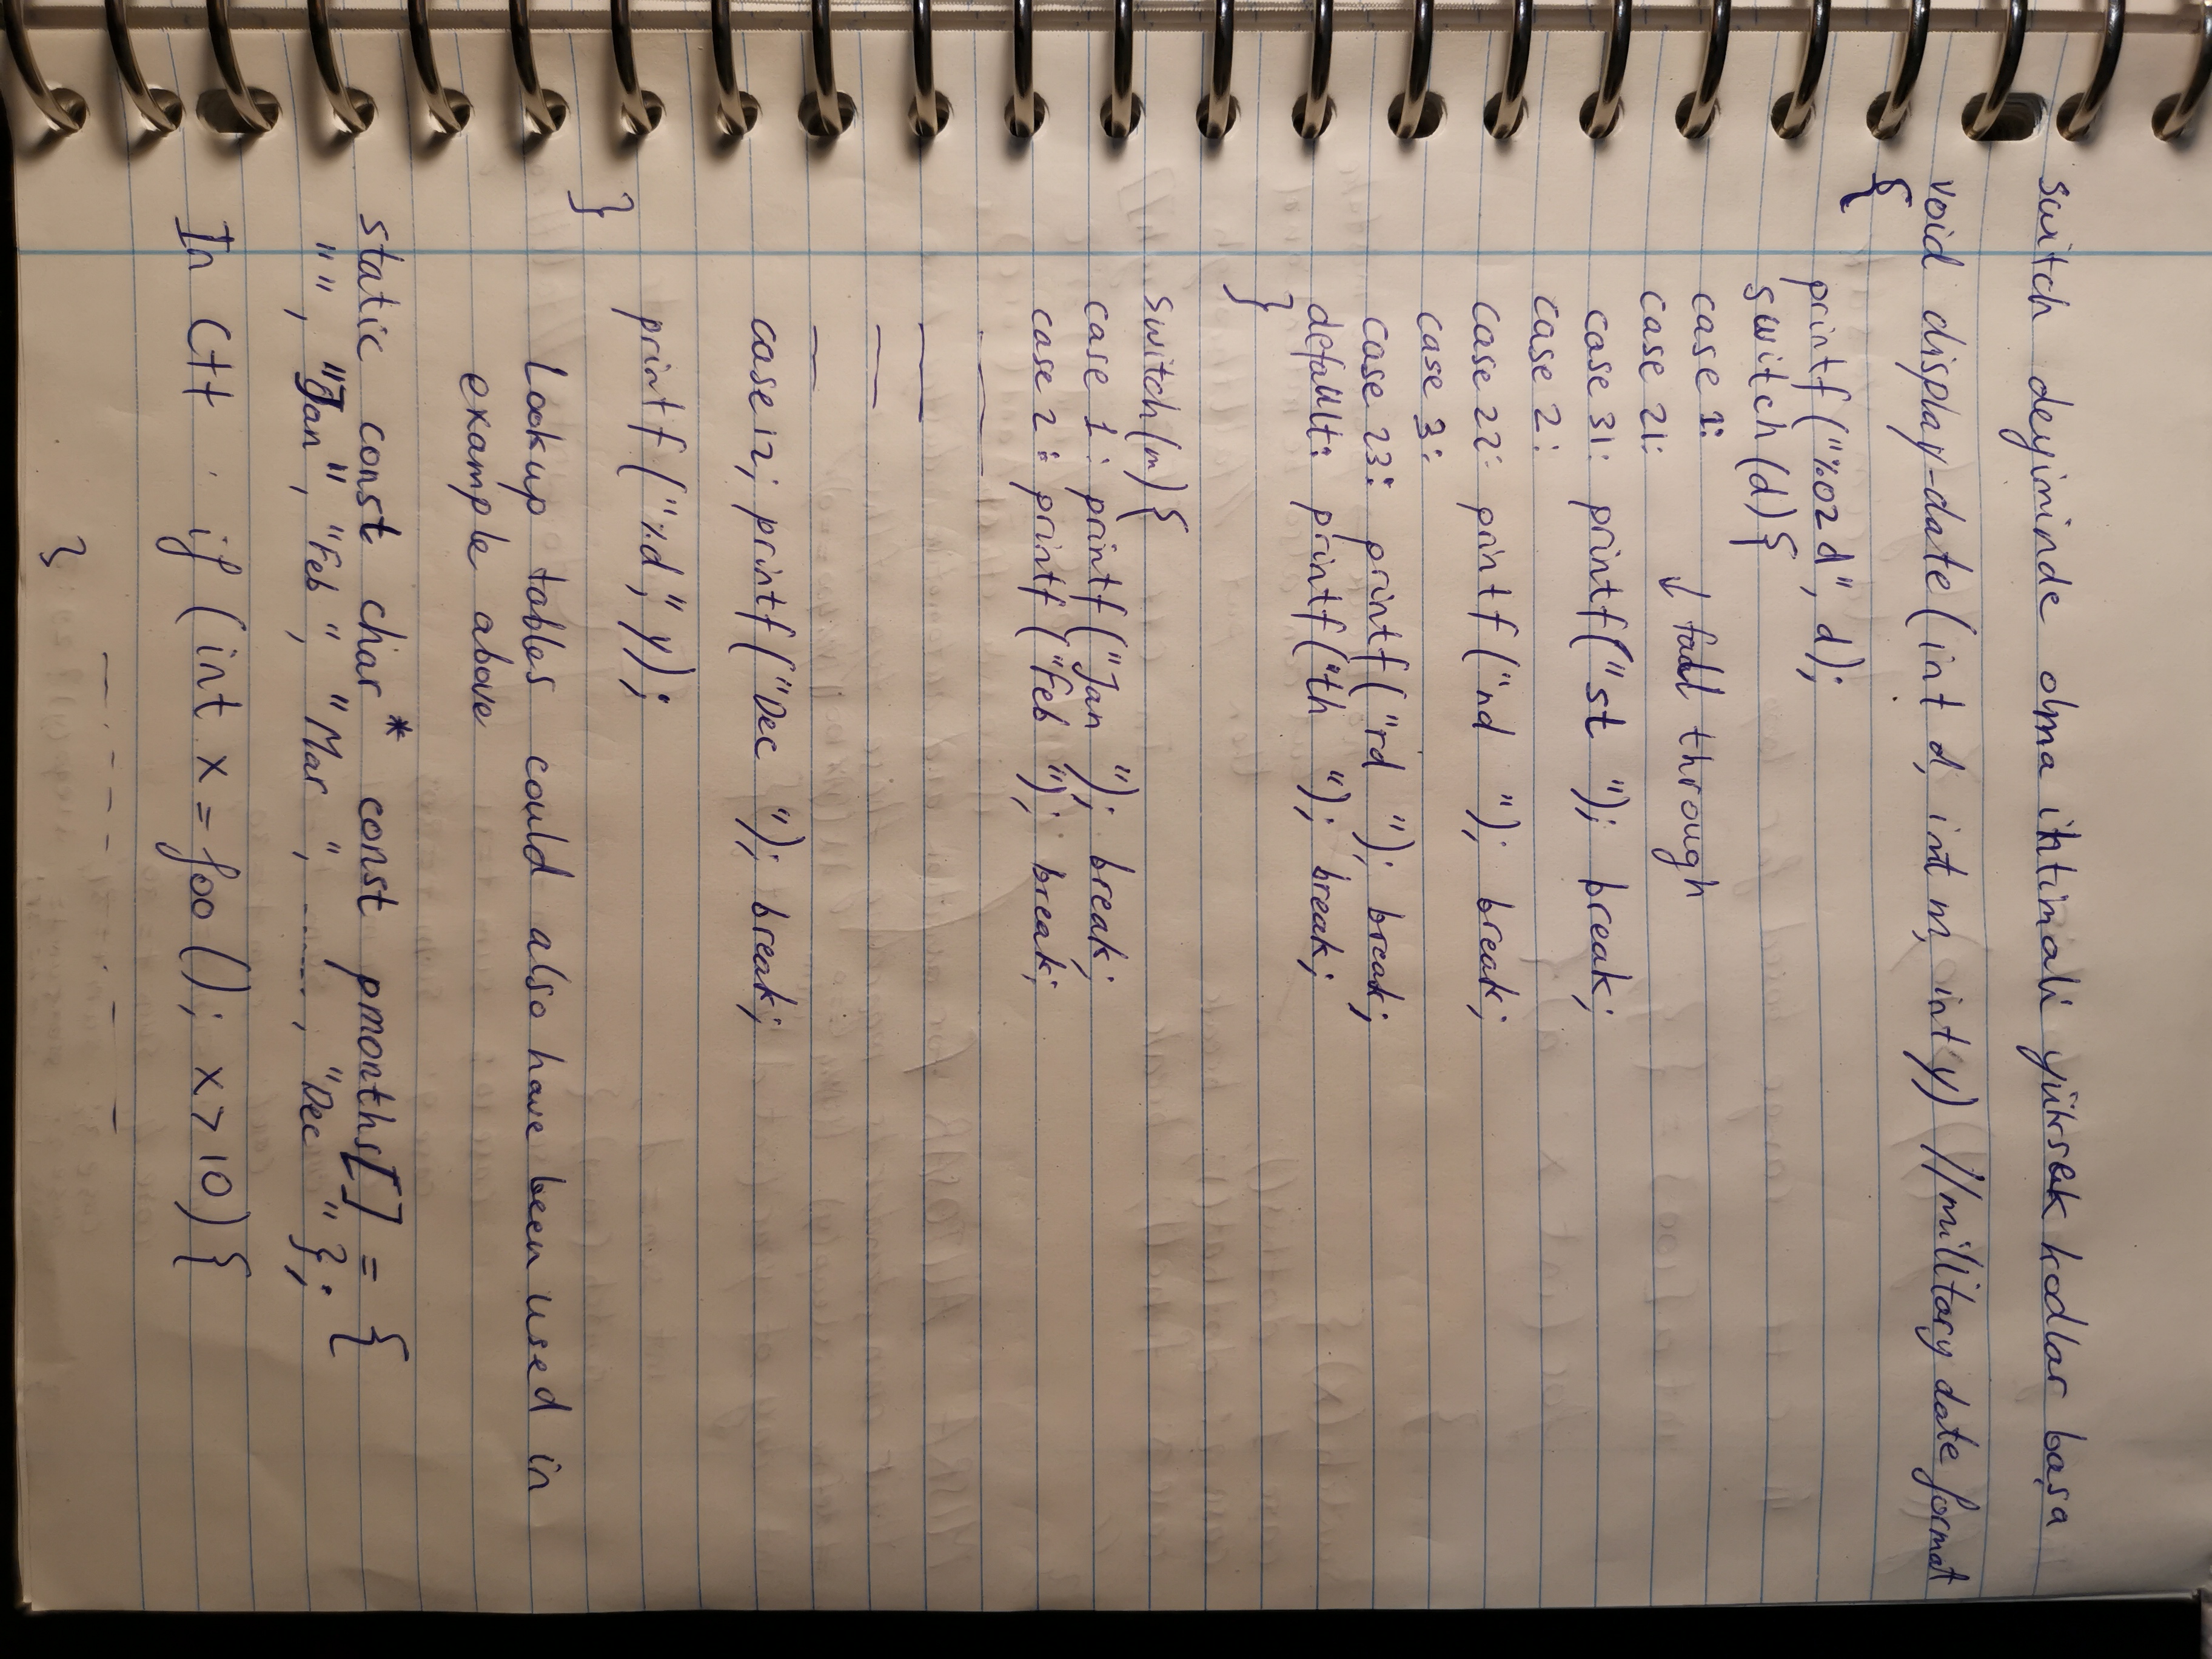 switch deyiminde olma ihtimali yüksek kodlar başa
void display-date(int d, int m, int y) //milltary date format
{
printf("%02d", d);
switch(d){
case 1:
↓ fall through
case 21:
case 31: printf("st "); break;
case 2:
case 22: printf("nd "); break;
case 3:
case 23: printf("rd "); break;
default: printf("th "); break;
}
switch(m){
case 1: printf("Jan "); break;
case 2: printf("Feb "); break;
case 12; printf("Dec "); break;
printf("%d", y);
}
Lookup tables could also have been used in
example above
static const char* const pmonths[] = {
"", "Jan", "Feb ", "Mar ", ......, "Dec "};
In C++ if (int x = foo(); x>10){
}